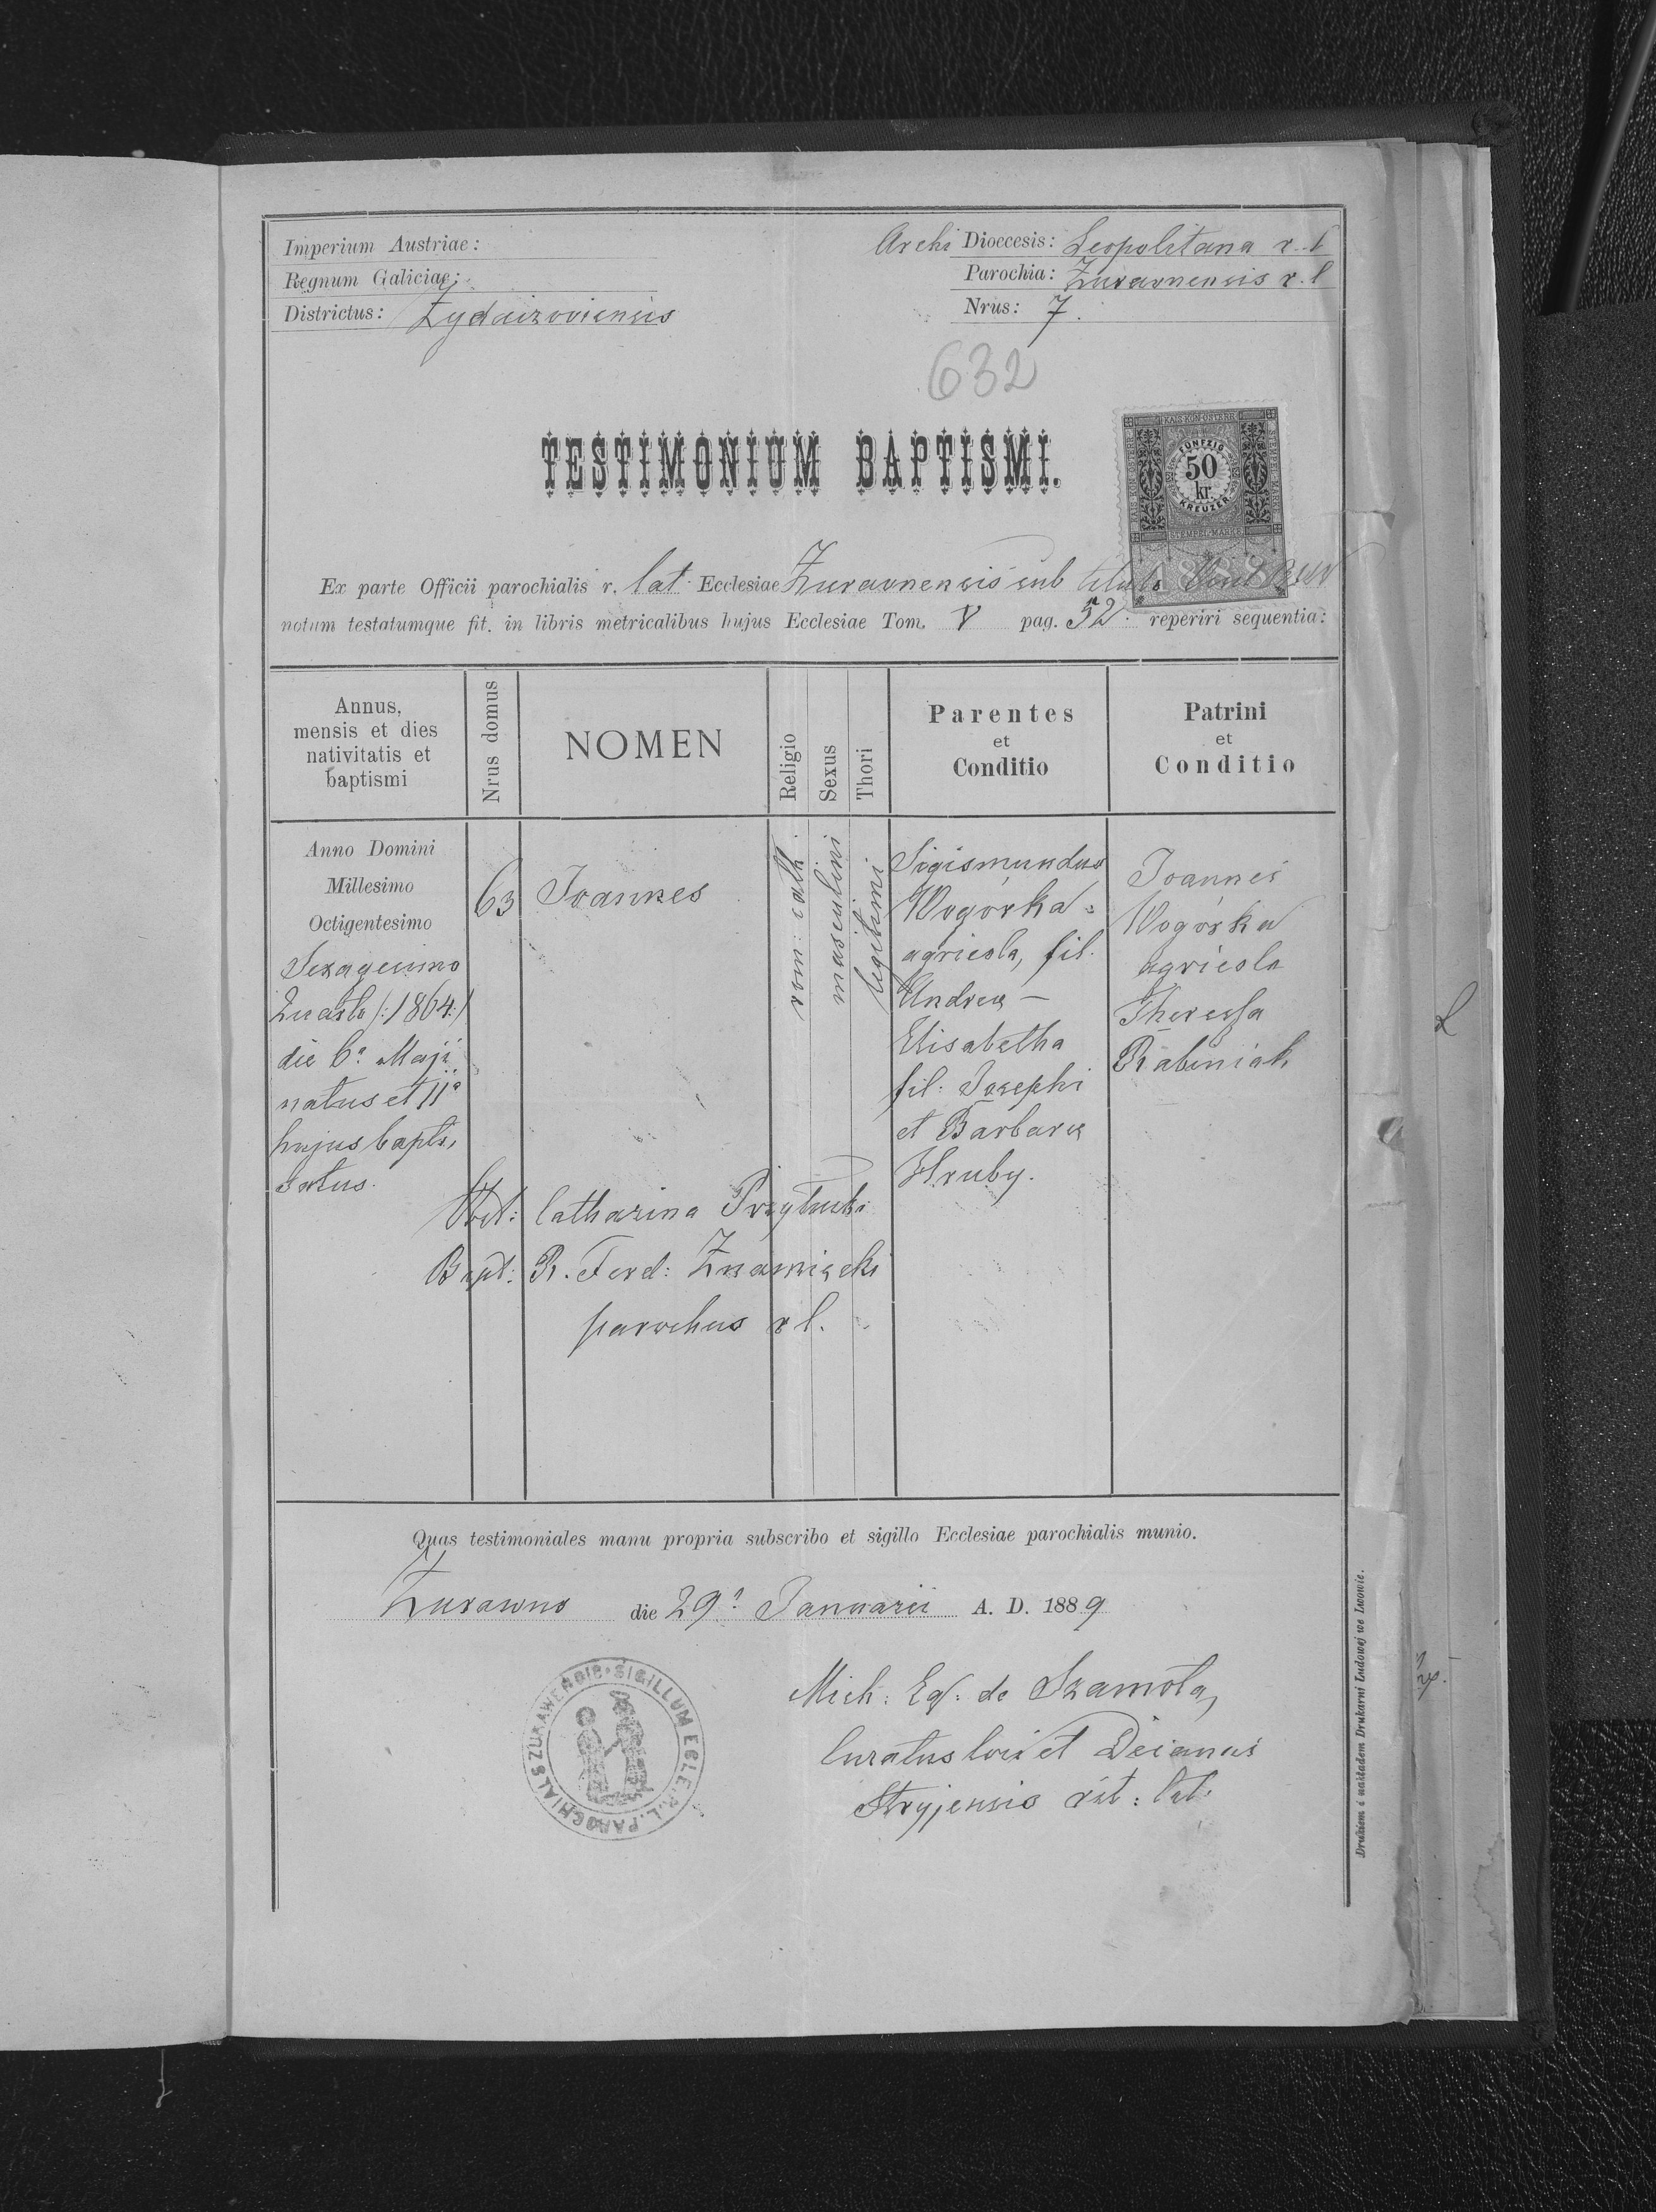 Imperium Austriae:
Archi Dioecesis: Leopolitana r. l
Regnum Galiciae:
Parochia: Żuravnensis r. l
Districtus: Żydaizoviensis
Nrus: 7.
632
TESTIMONIUM BAPTISMI.
KAIS. KÖN. ÖSTERR.
FÜNFZIG
50
kr.
KREUZER
STEMPEL-MARKE
Ex parte Officii parochialis r. lat. Ecclesiae Żuravnensis sub titulo
notum testatumque fit. in libris metricalibus hujus Ecclesiae Tom. V pag. 52. reperiri sequentia:
Annus,
mensis et dies
nativitatis et
baptismi
Nrus domus
NOMEN
Religio
Sexus
Thori
Parentes
et
Conditio
Patrini
et
Conditio
Anno Domini
Millesimo
Octigentesimo
Sexagesimo
Quarto /:1864:/
die 6ª Maji
natus et 11ª
hujus bapti,
satus.
63
Joannes
rom: cath.
masculini
legitimi
Sigismundus
Wogórka =
agricola, fil.
Andreæ —
Elisabetha
fil: Josephi
et Barbaræ
Hruby.
Joannes
Wogórka
agricola
Theressa
Rabiniak
Obst: Catharina
Bapt: R. Ferd: Znamięcki
parochus r l.
Quas testimoniales manu propria subscribo et sigillo Ecclesiae parochialis munio.
Żurawno die 29ª Januarii A. D. 1889
SIGILLUM ECCLE. R. L. PAROCHIALS ZURAWENSIS
Mich: Eq: de Szamota,
Curatus loci et Decanus
Stryjensis rit: lat:
Drukiem i nakładem Drukarni Ludowej we Lwowie.